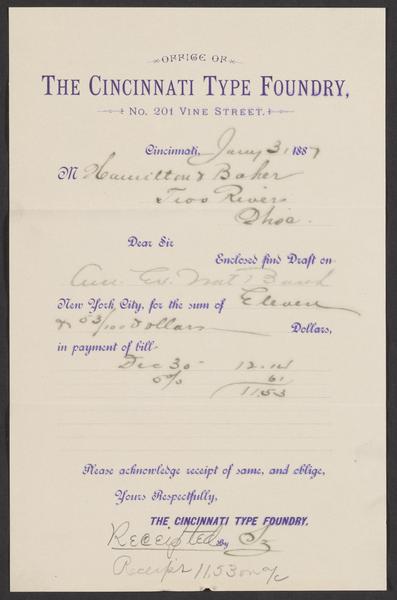 OFFICE OF
THE CINCINNATI TYPE FOUNDRY,
No. 201 VINE STREET.
Cincinnati, Jany 31 1887
M Hamilton & Baker
Two Rivers
Dear Sir
Enclosed find Draft on
Am. Ex. Nat Bank
New York City, for the sum of Eleven
& 53/100 Dollars Dollars,
in payment of bill-
Dec 30 12.14
5% 61
11.53
Please acknowledge receipt of same, and oblige,
Yours Respectfully,
THE CINCINNATI TYPE FOUNDRY.
Receipted By
Receipt 11.53 on a/c